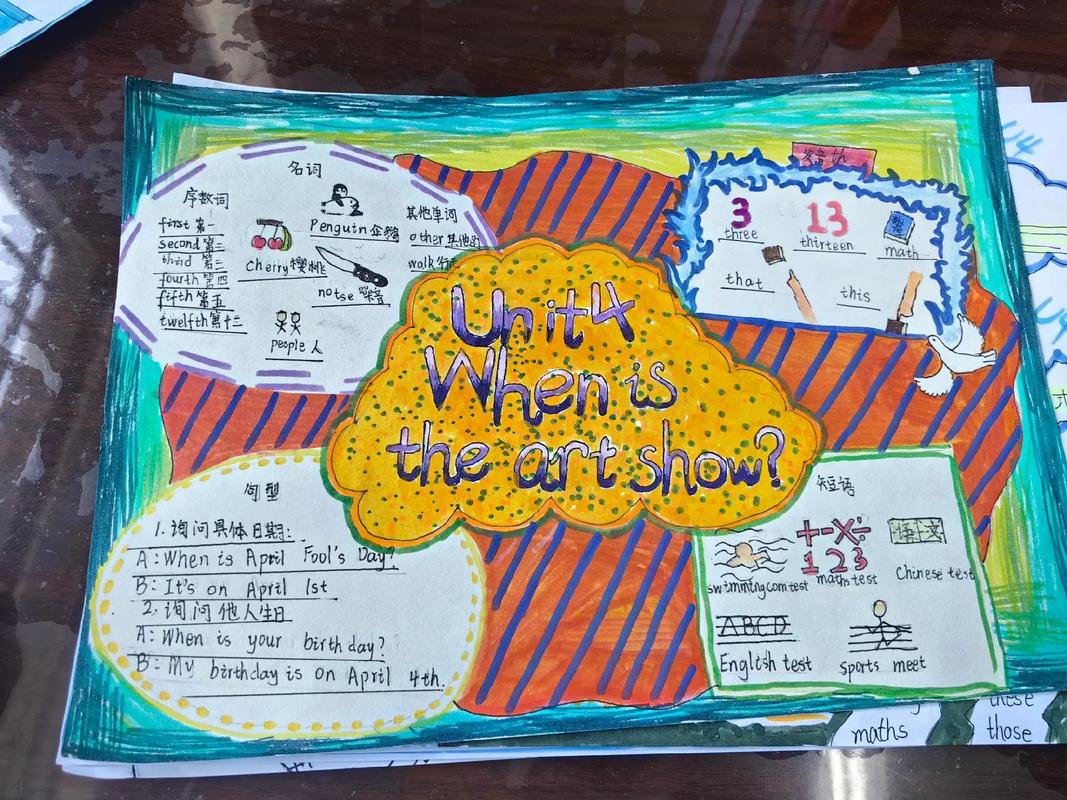 名词
序数词
first 第一
second 第二
third 第三
fourth 第四
fifth 第五
twelfth 第十二
Penguin 企鹅
cherry 樱桃
notse 噪音
people 人
其他单词
other 其他的
walk
发音th
3
three
13
thirteen
数学
math
that
this
Unit4
When is
the art show?
句型
1.询问具体日期:
A:When is April Fool's Day?
B: It's on April 1st
2.询问他人生日
A: When is your birthday?
B: My birthday is on April 4th.
短语
swimmingcomtest
+-×÷
123
maths test
语文
Chinese test
ABCD
English test
sports meet
U4
these
maths
those